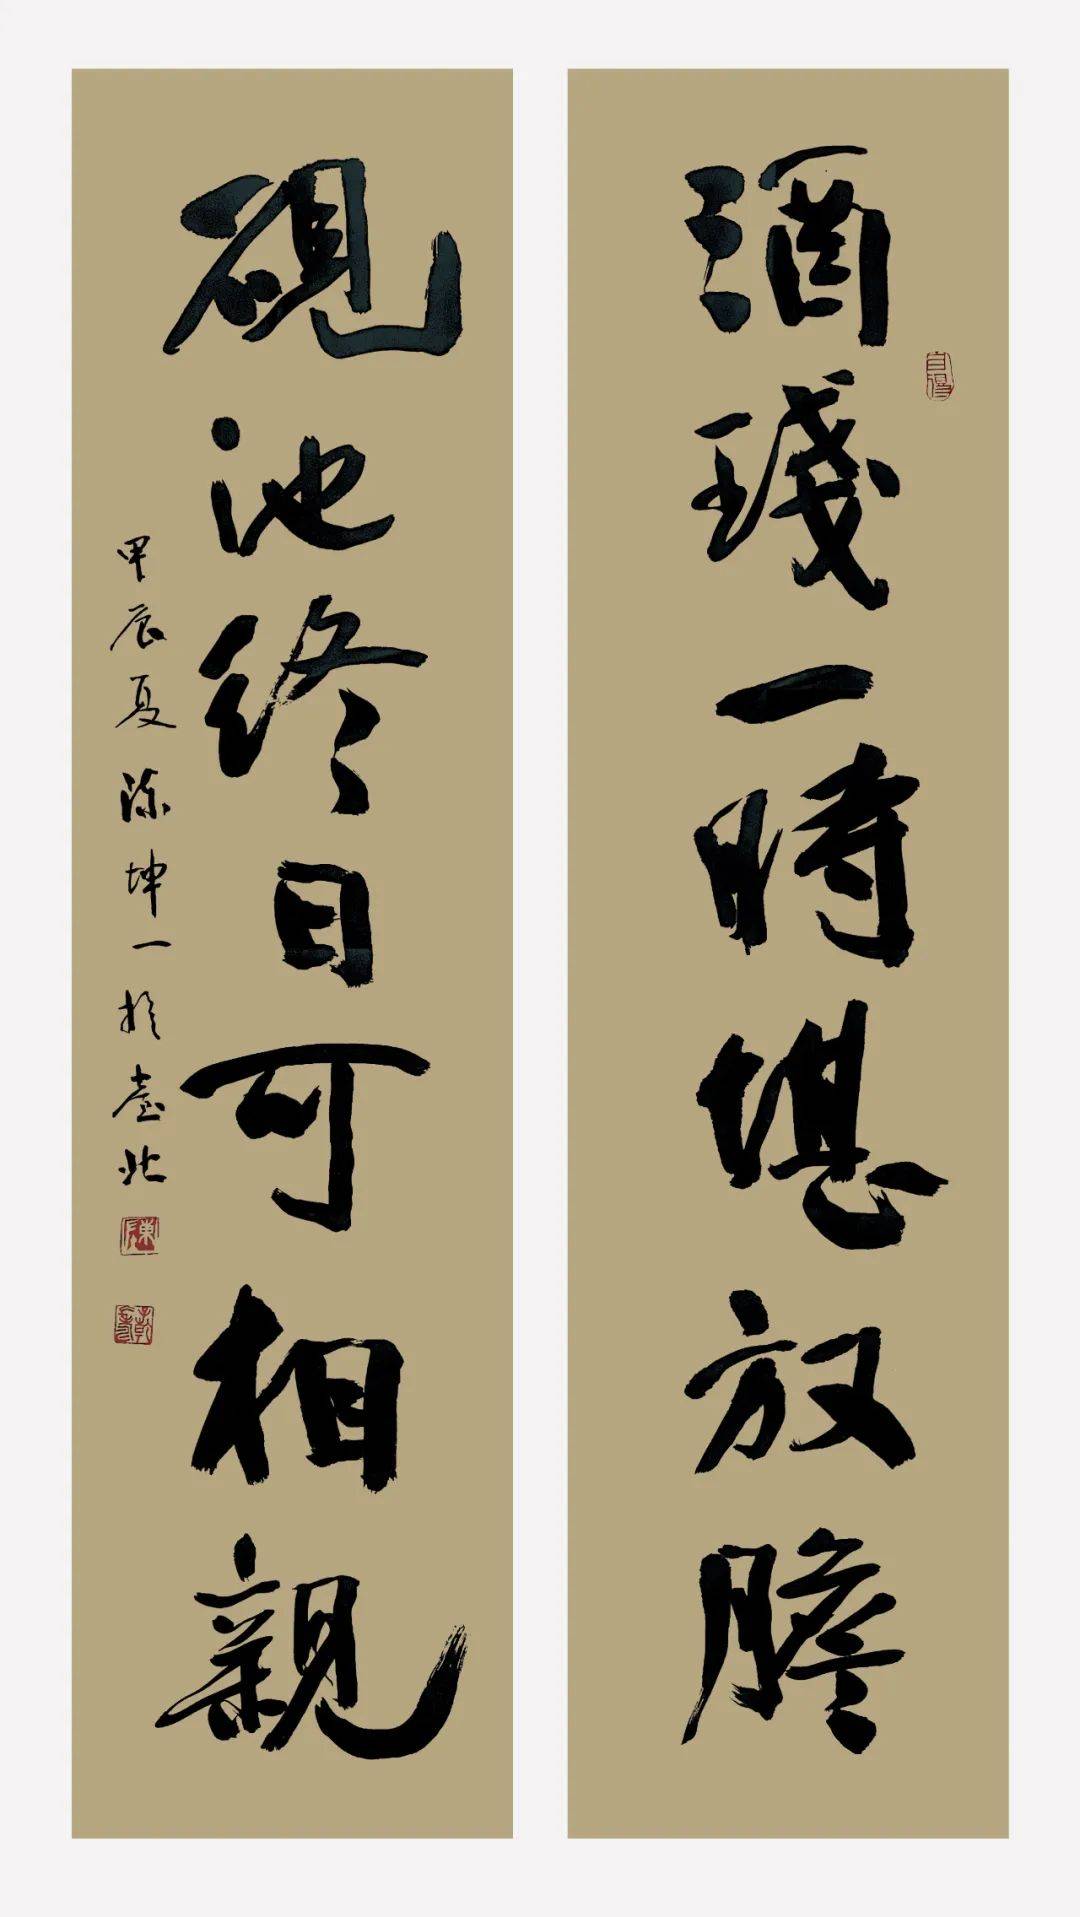 酒琖一時堪放膽
硯池終日可相親
甲辰夏陳坤一於臺北